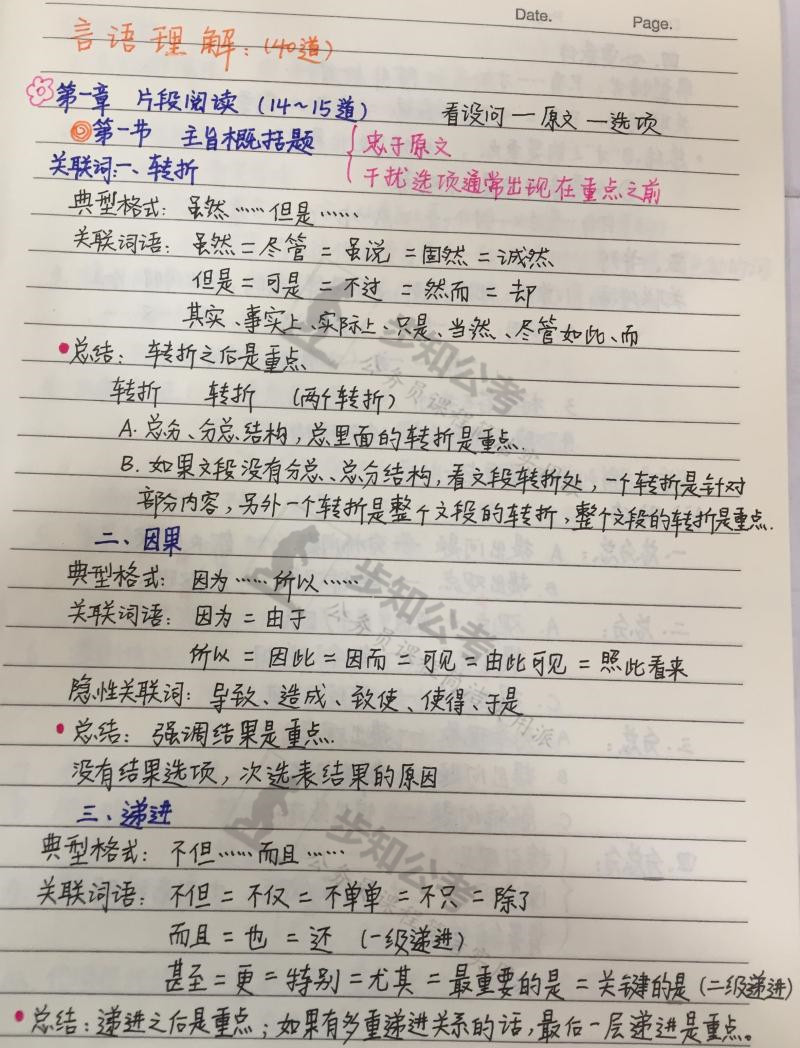 Date.
Page.
言语理解:(40道)
第一章 片段阅读 (14~15道) 看设问一原文一选项
第一节 主旨概括题 忠于原文
关联词:一、转折 干扰选项通常出现在重点之前
典型格式: 虽然……但是……
关联词语: 虽然=尽管=虽说=固然=诚然
但是=可是=不过=然而=却
其实、事实上、实际上、只是、当然、尽管如此、而
总结: 转折之后是重点.
转折 转折 (两个转折)
A. 总分、分总结构, 总里面的转折是重点.
B. 如果文段没有分总、总分结构, 看文段转折处, 一个转折是针对
部分内容, 另外一个转折是整个文段的转折, 整个文段的转折是重点.
二、因果
典型格式: 因为……所以……
关联词语: 因为=由于
所以=因此=因而=可见=由此可见=照此看来
隐性关联词: 导致、造成、致使、使得、于是
总结: 强调结果是重点.
没有结果选项, 次选表结果的原因
三、递进
典型格式: 不但……而且……
关联词语: 不但=不仅=不单单=不只=除了
而且=也=还 (一级递进)
甚至=更=特别=尤其=最重要的是=关键的是(二级递进)
总结:递进之后是重点;如果有多重递进关系的话,最后一层递进是重点。
步知公考
步知公考
步知公考